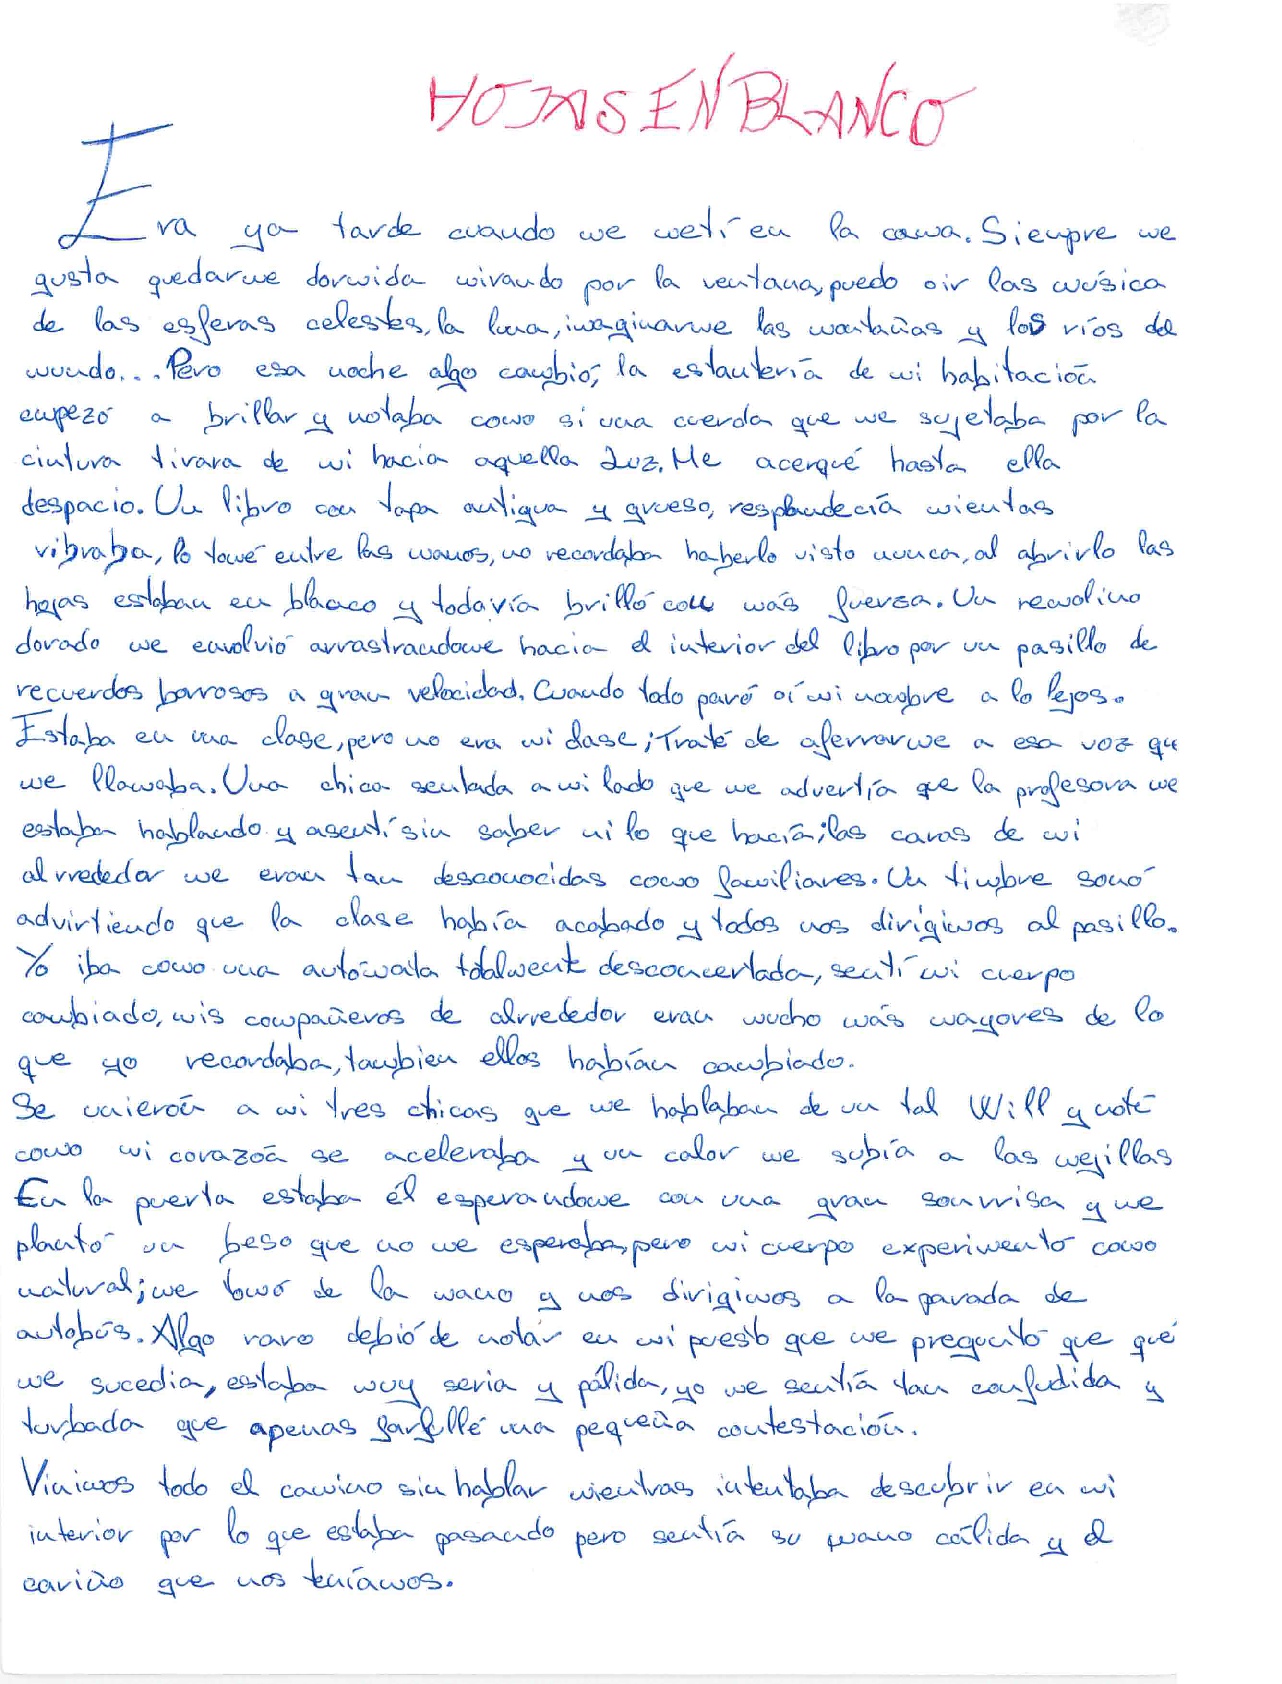 HOJAS EN BLANCO
Era ya tarde cuando me metí en la cama. Siempre me
gusta quedarme dormida mirando por la ventana, puedo oir las música
de las esferas celestes, la luna, imaginarme las montañas y los ríos del
mundo... Pero esa noche algo cambió, la estantería de mi habitación
empezó a brillar y notaba como si una cuerda que me sujetaba por la
cintura tirara de mi hacia aquella luz. Me acerqué hasta ella
despacio. Un libro con tapa antigua y grueso, resplandecía mientas
vibraba, lo tomé entre las manos, no recordaba haberlo visto nunca, al abrirlo las
hojas estaban en blanco y todavía brilló con más fuerza. Un remolino
dorado me envolvió arrastrandome hacia el interior del libro por un pasillo de
recuerdos borrosos a gran velocidad. Cuando todo paró oí mi nombre a lo lejos.
Estaba en una clase, pero no era mi clase; Traté de aferrarme a esa voz que
me llamaba. Una chica sentada a mi lado que me advertía que la profesora me
estaba hablando y asentí sin saber ni lo que hacía; las caras de mi
alrrededor me eran tan desconocidas como familiares. Un timbre sonó
advirtiendo que la clase había acabado y todos nos dirigimos al pasillo.
Yo iba como una autómata totalmente desconcertada, sentí mi cuerpo
cambiado, mis compañeros de alrrededor eran mucho más mayores de lo
que yo recordaba, tambien ellos habían cambiado.
Se unierón a mi tres chicas que me hablaban de un tal Will y noté
como mi corazón se aceleraba y un calor me subía a las mejillas
En la puerta estaba él esperandome con una gran sonrrisa y me
plantó un beso que no me esperaba, pero mi cuerpo experimentó como
natural; me tomó de la mano y nos dirigimos a la parada de
autobús. Algo raro debió de notar en mi puesto que me preguntó que qué
me sucedia, estaba muy seria y pálida, yo me sentía tan confudida y
turbada que apenas farfullé una pequeña contestación.
Vinimos todo el camino sin hablar mientras intentaba descubrir en mi
interior por lo que estaba pasando pero sentía su mano cálida y el
cariño que nos teníamos.